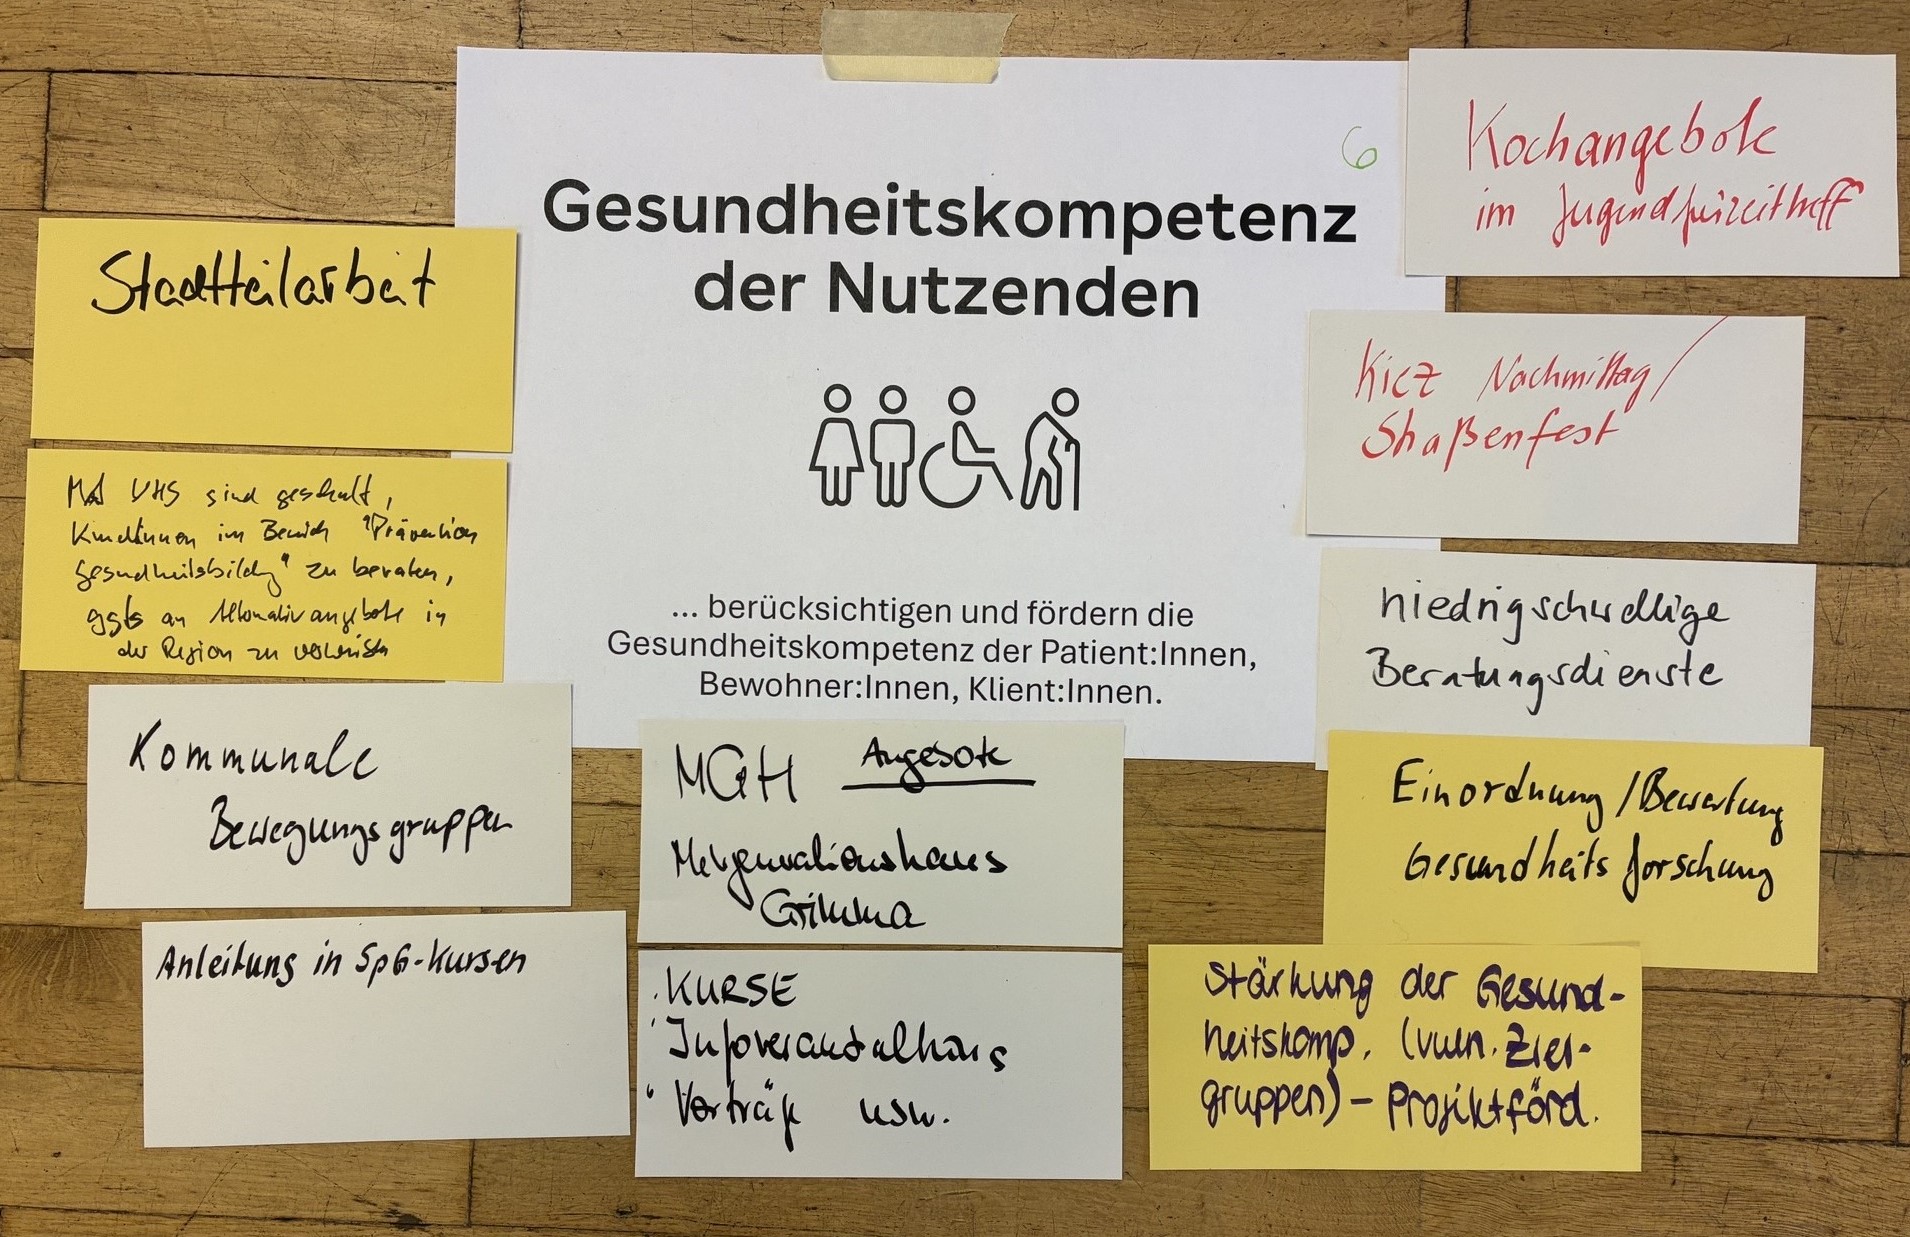 6
Gesundheitskompetenz
der Nutzenden
... berücksichtigen und fördern die
Gesundheitskompetenz der Patient:Innen,
Bewohner:Innen, Klient:Innen.
Stadtteilarbeit
MA VHS sind geschult,
KundInnen im Bereich "Prävention
Gesundheitsbildg" zu beraten,
ggfs an Alternativangebote in
der Region zu verweisen
Kommunale
Bewegungsgruppen
Anleitung in SpG-Kursen
MGH Angebote
Mehrgenerationshaus
Grimma
· KURSE
· Infoveranstaltung
· Vorträge usw.
Kochangebote
im Jugendfreizeittreff
Kiez Nachmittag/
Straßenfest
niedrigschwellige
Beratungsdienste
Einordnung / Bewertung
Gesundheitsforschung
Stärkung der Gesund-
heitskomp. (vuln. Ziel-
gruppen) – Projektförd.